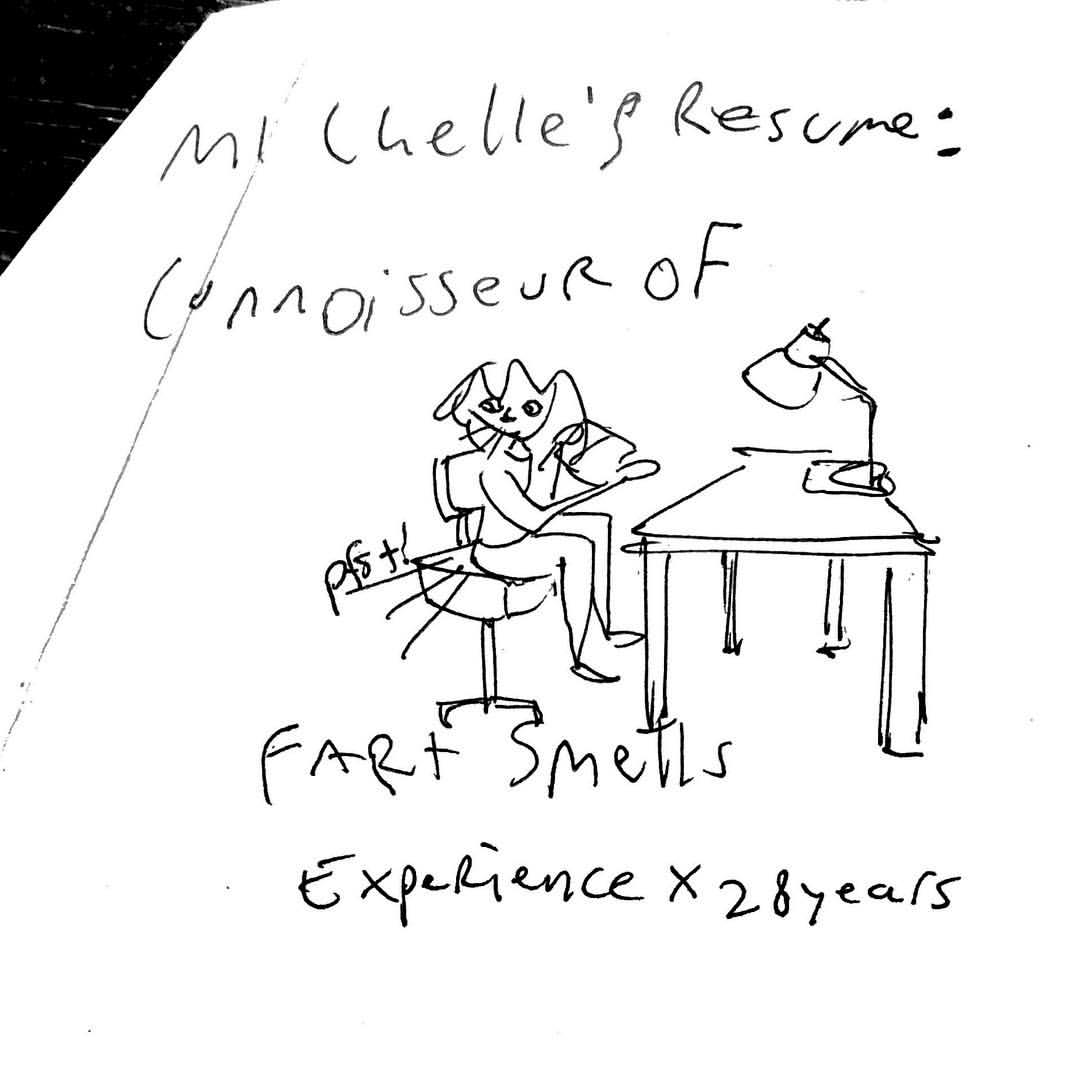 MIChelle's Resume:
ConnOisseuR OF
pfft!
FARt Smells
ExpeRience x 28years